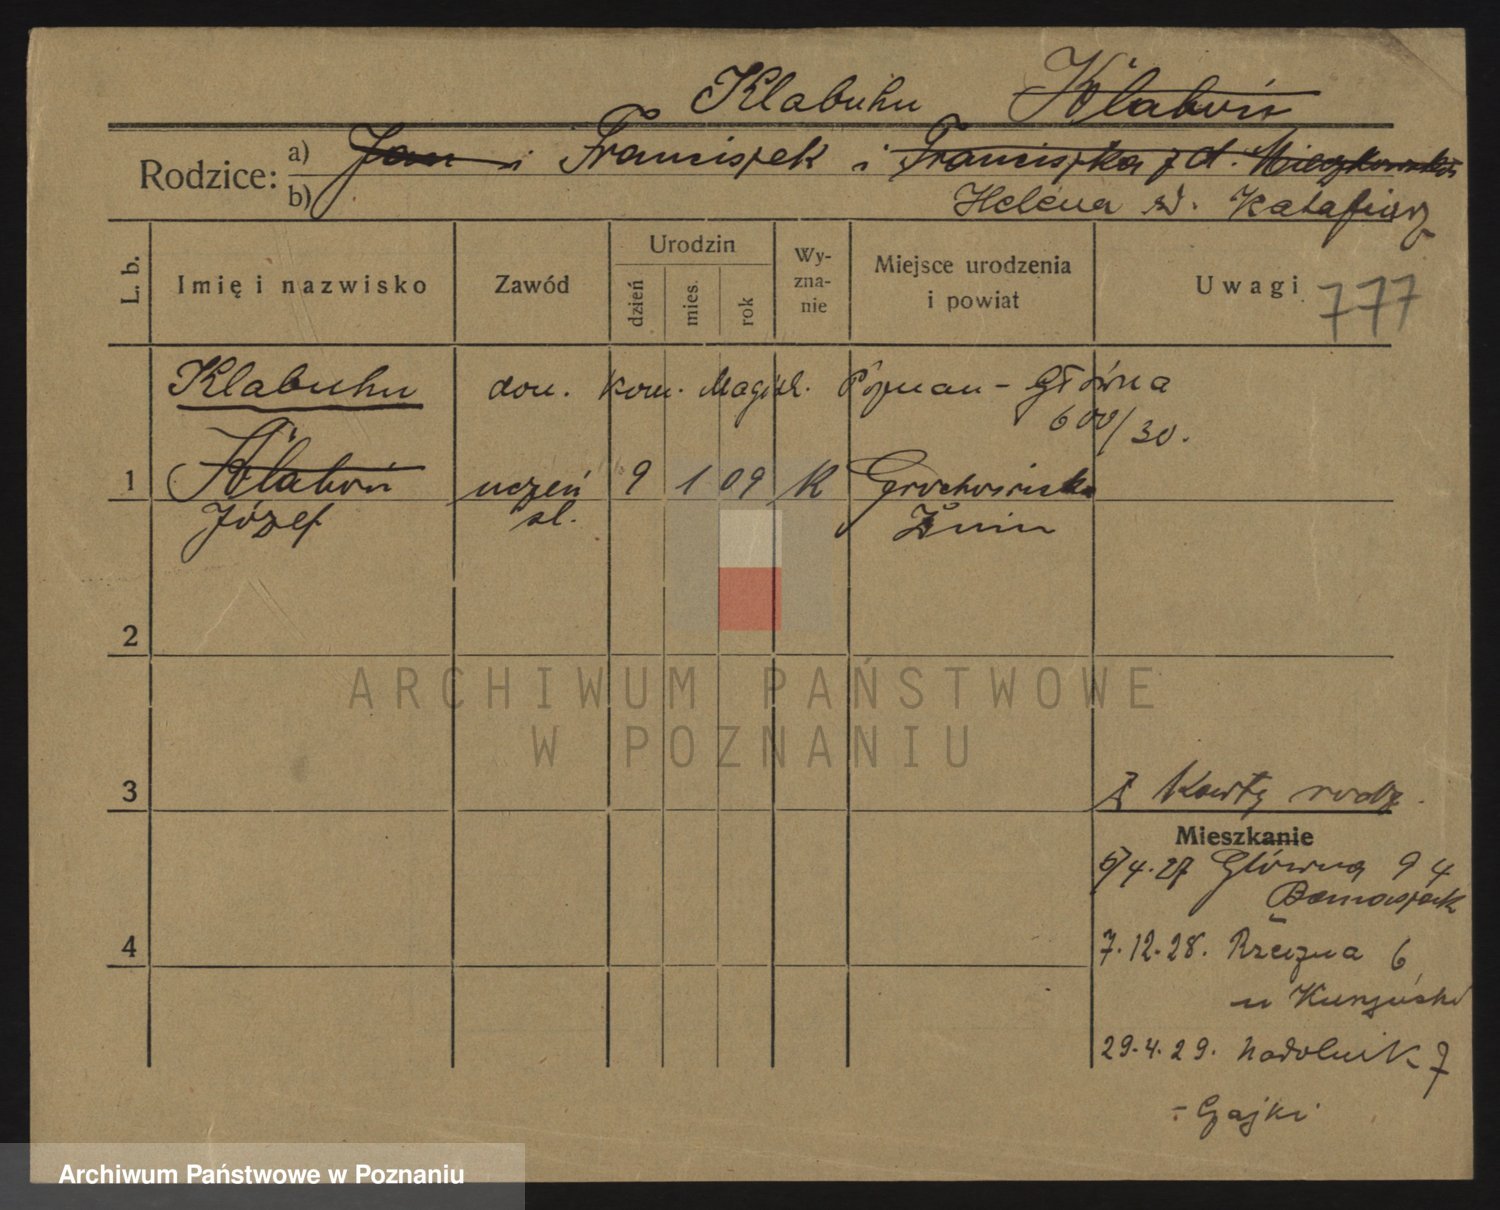 Klabuhn Klaboń
Rodzice: a) Jan i Franciszek i Franciszka z d. Mieczkowska
b) Helena z d. Katafiasz
L. b. Imię i nazwisko Zawód Urodzin dzień mies. rok Wy-zna-nie Miejsce urodzenia i powiat Uwagi 777
Klabuhn don. Kom. Magist. Poznań - Główna
600/30.
1 Klaboń uczeń 9 1 09 K Grochowiska
Józef śl. Żnin
2
3
Z karty rodz.
Mieszkanie
5/4.27 Główna 94
7.12.28. Rzeczna 6
4
u
29.4.29. Nadolnik 7
- Gajki
ARCHIWUM PAŃSTWOWE
W POZNANIU
Archiwum Państwowe w Poznaniu